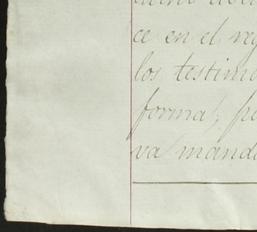 ce en el reg
los testimo
forma, pe
va manda